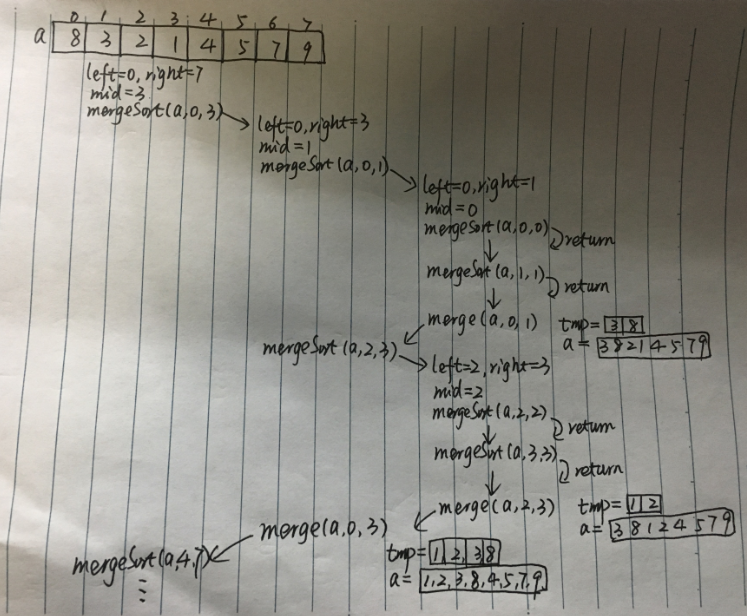 0 1 2 3 4 5 6 7
a 8 3 2 1 4 5 7 9
left=0, right=7
mid=3
mergeSort(a,0,3)
left=0, right=3
mid=1
mergeSort(a,0,1)
left=0, right=1
mid=0
mergeSort(a,0,0) return
mergeSort(a,1,1) return
merge(a,0,1) tmp= 3 8
a= 3 8 2 1 4 5 7 9
mergeSort(a,2,3)
left=2, right=3
mid=2
mergeSort(a,2,2) return
mergeSort(a,3,3) return
merge(a,2,3) tmp= 1 2
a= 3 8 1 2 4 5 7 9
merge(a,0,3)
tmp= 1 2, 3 8
a= 1,2,3,8,4,5,7,9
mergeSort(a,4,7)